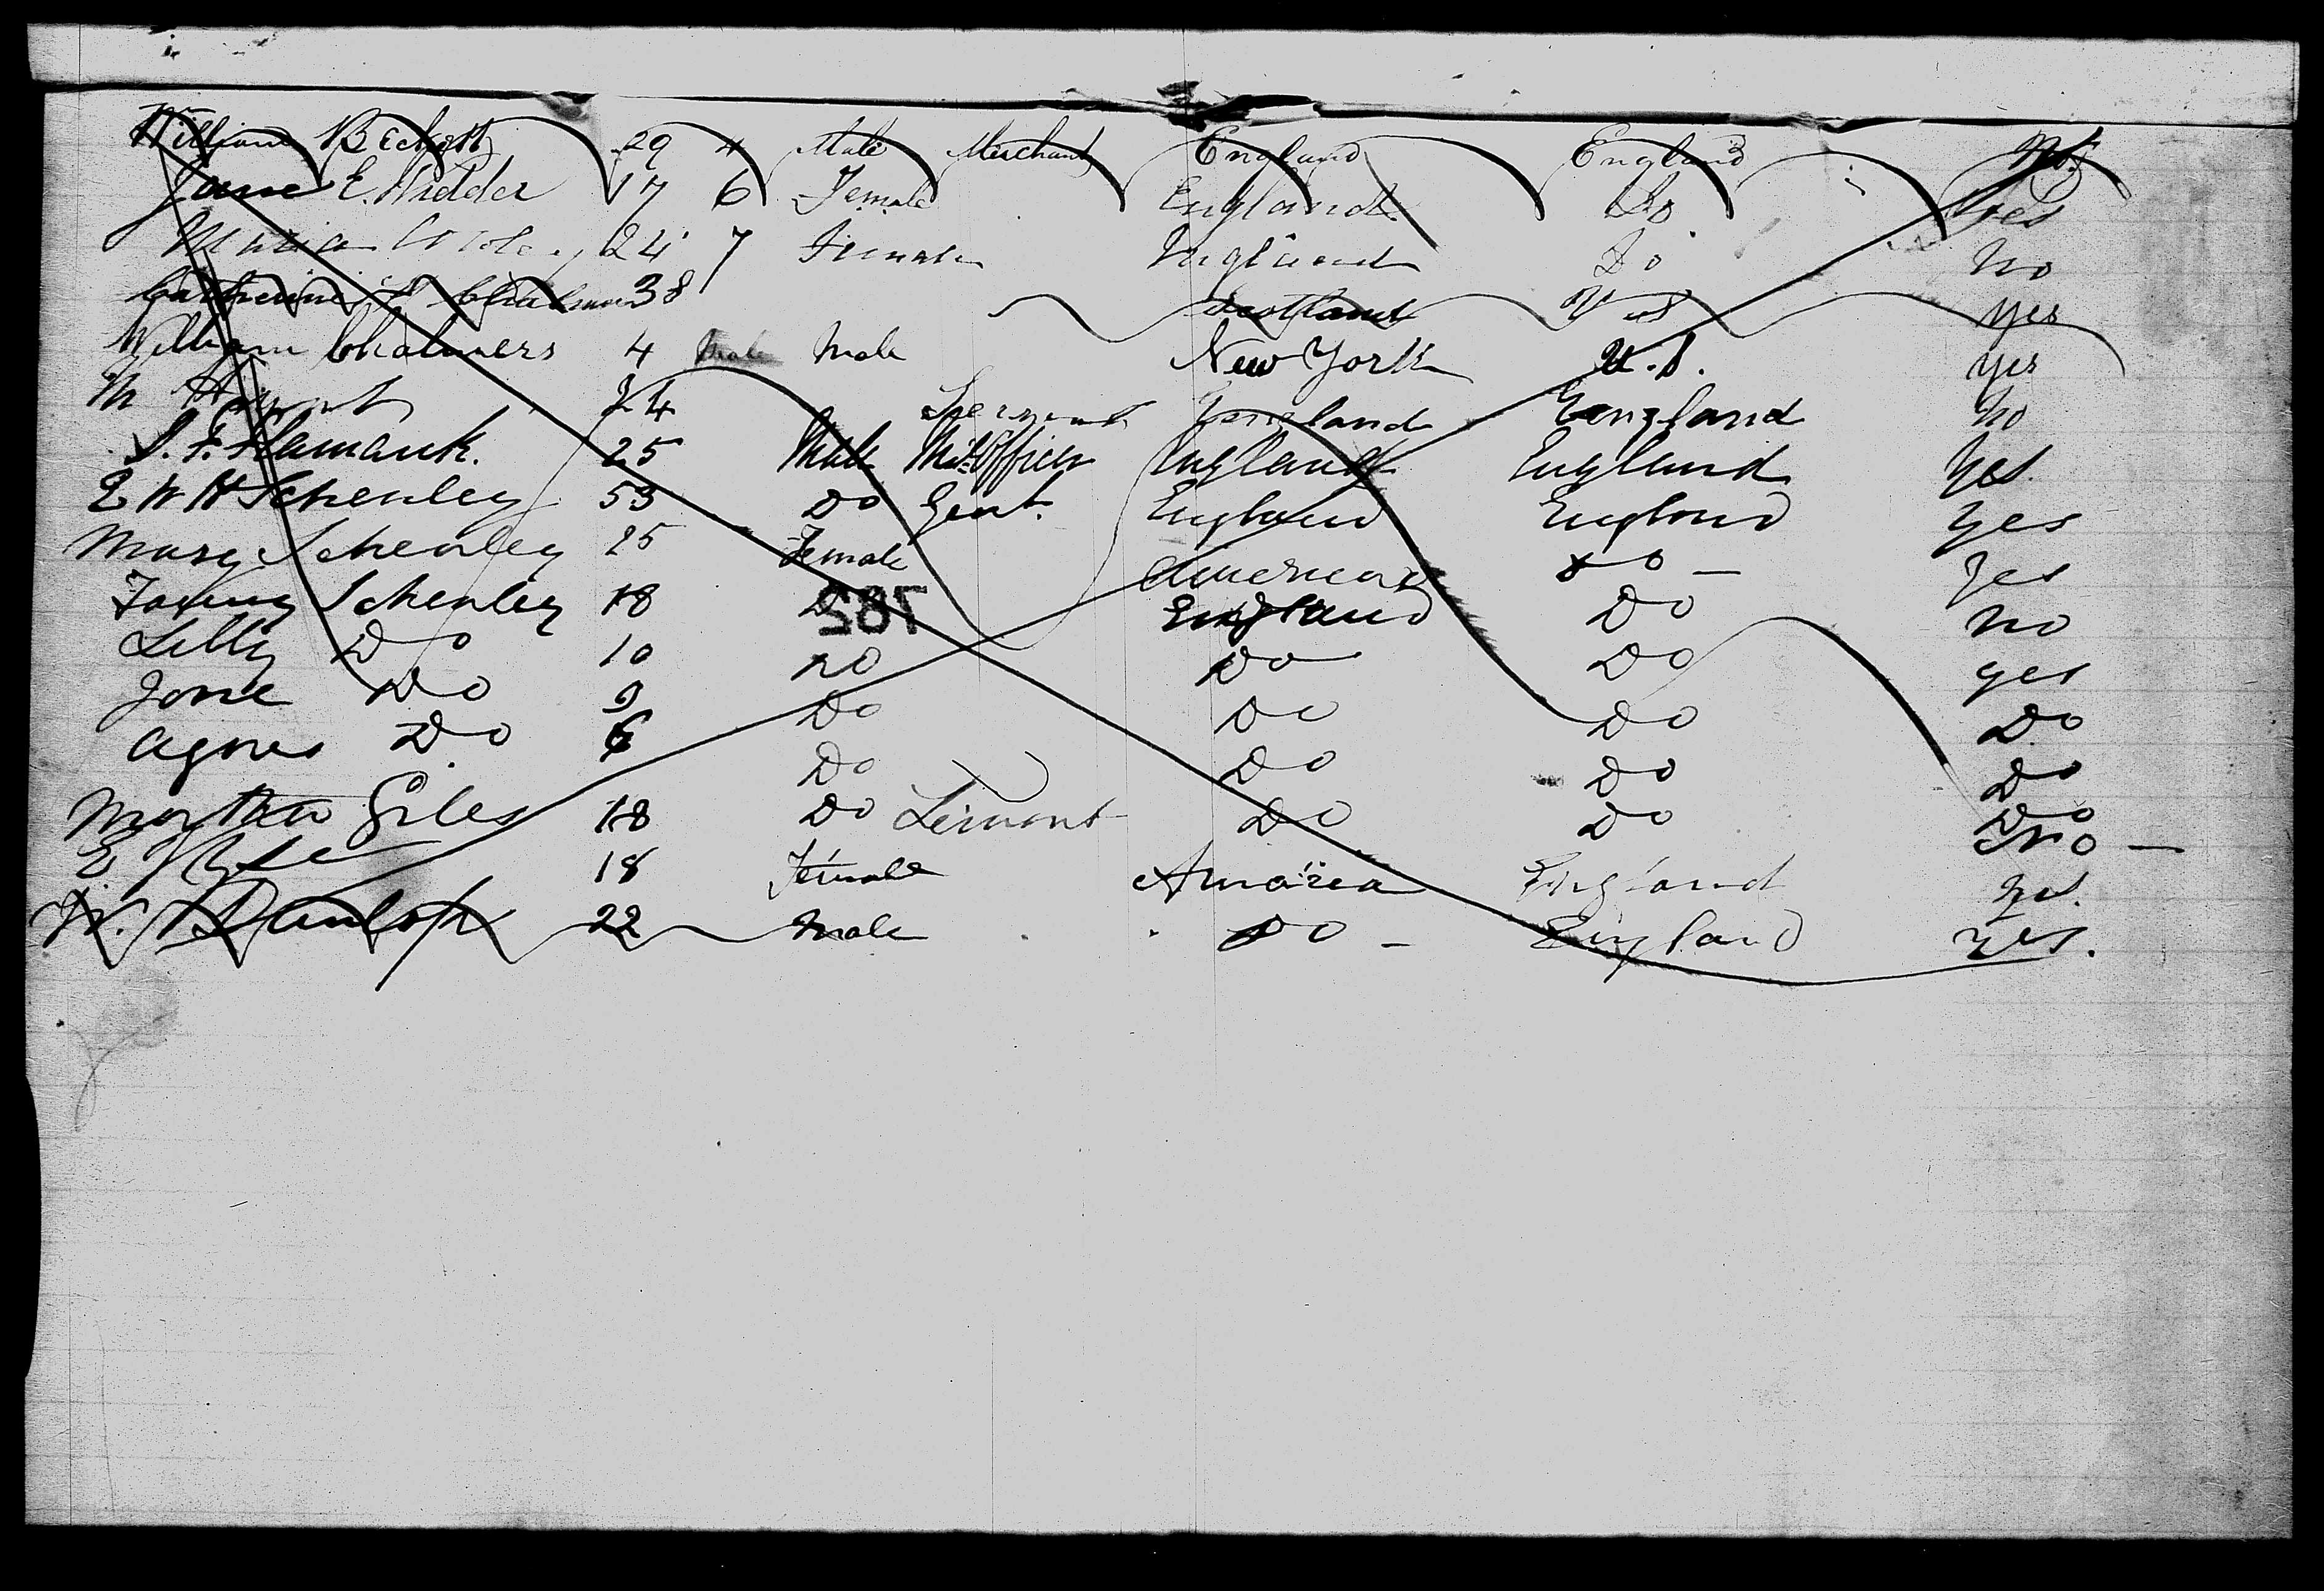 William Beckett 29 4 Male Merchant England England No.
Jane E. Hidder 17 6 Female England Do Yes
Maria 24 7 Female England Do No
Catherine Chalmers 38 Scotland U S yes
William Chalmers 4 Male Male New York U.S. yes
M 24 Servant England England No
S. F. Flamank. 25 Male Mil. Officer England England Yes.
E W H Schenley 53 Do Gent. England England Yes
Mary Schenley 25 Female American Do — Yes
Fanny Schenley 18 Do England Do No
Lilly Do 10 Do Do Do yes
Jane Do 9 Do Do Do Do
Agnes Do 6 Do Do Do Do
Martha Giles 18 Do Servant Do Do Do
No —
E 18 Female America England yes.
W. Dunlop 22 Male Do — England Yes.
782